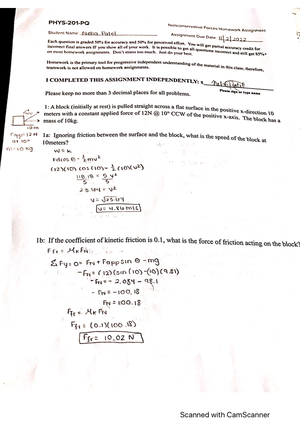 PHYS-201-PQ
Nonconservative Forces Homework Assignment
Student Name: Neha Patel
Assignment Due Date: 11/2/2022
Each question is graded 50% for accuracy and 50% for perceived effort. You will get partial accuracy credit for
incorrect final answers IF you show all of your work. It is possible to get all questions incorrect and still get 85%+
on most homework assignments. Don't stress too much. Just do your best.
Homework is the primary tool for progressive independent understanding of the material in this class; therefore,
teamwork is not allowed on homework assignments.
I COMPLETED THIS ASSIGNMENT INDEPENDENTLY: x
Please sign or type name
Please keep no more than 3 decimal places for all problems.
1: A block (initially at rest) is pulled straight across a flat surface in the positive x-direction 10
meters with a constant applied force of 12N @ 10° CCW of the positive x-axis. The block has a
mass of 10kg.
10m
Fapp=12N
at 10°
m=10 kg
1a: Ignoring friction between the surface and the block, what is the speed of the block at
10meters?
W = K
Fdcos θ = ½mv²
(12)(10)(cos(10)) = ½(10)(v²)
118.18 = 5v²
5 5
v = 4.86 m/s
1b: If the coefficient of kinetic friction is 0.1, what is the force of friction acting on the block?
Ffr = MkFN
ΣFy=0= FN + Fapp sin θ - mg
-FN = (12)(sin(10)-(10)(9.81)
-FN = - 100.18
FN = 100.18
Ffr = MkFN
Ffr = (0.1)(100.18)
Ffr = 10.02 N
Scanned with CamScanner